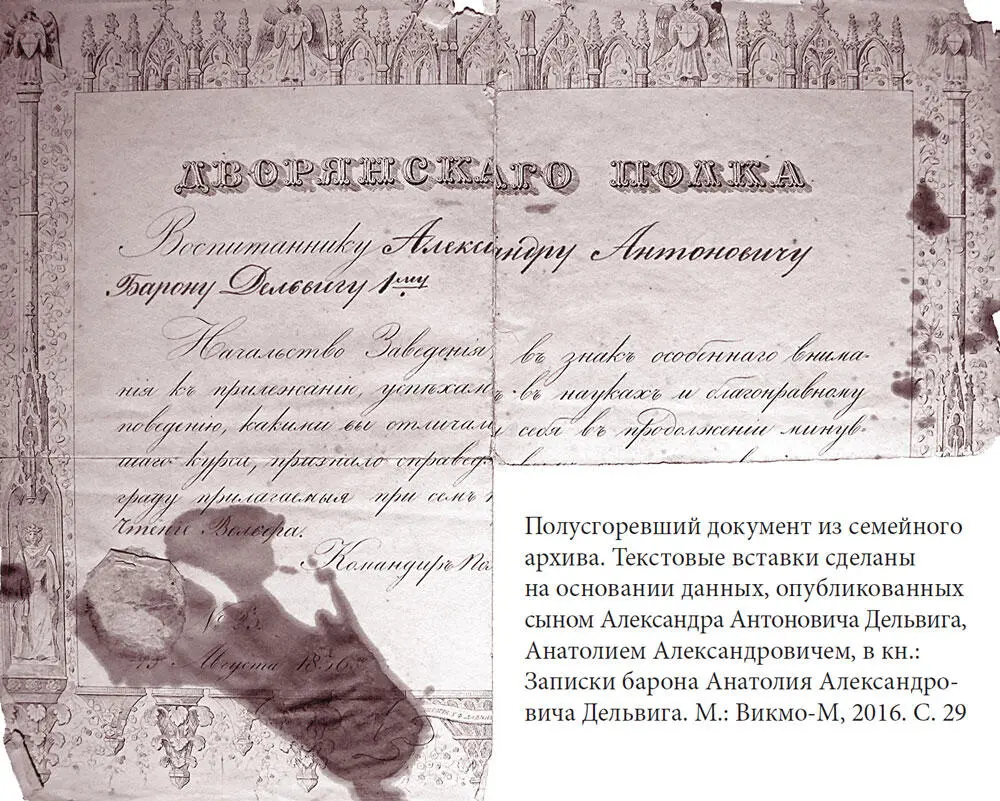 ДВОРЯНСКАГО ПОЛКА
Воспитаннику Александру Антоновичу
Барону Дельвигу 1му
Начальство Заведенія, въ знакъ особеннаго внима-
нія къ прилежанію, успѣхамъ въ наукахъ и благонравному
поведенію, какими вы отличали себя въ продолженіи минув-
шаго курса, признало справед
граду прилагаемыя при семъ
Чтені Вольера.
Командиръ Пол
№ 23.
Августа 1836
Полусгоревший документ из семейного
архива. Текстовые вставки сделаны
на основании данных, опубликованных
сыном Александра Антоновича Дельвига,
Анатолием Александровичем, в кн.:
Записки барона Анатолия Александро-
вича Дельвига. М.: Викмо-М, 2016. С. 29